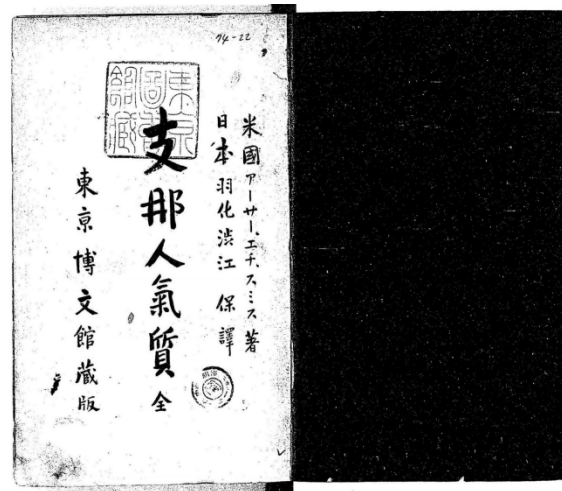 74-22
米國アーサー、エチ、スミス著
日本羽化渋江保譯
支那人氣質全
東京博文館蔵版